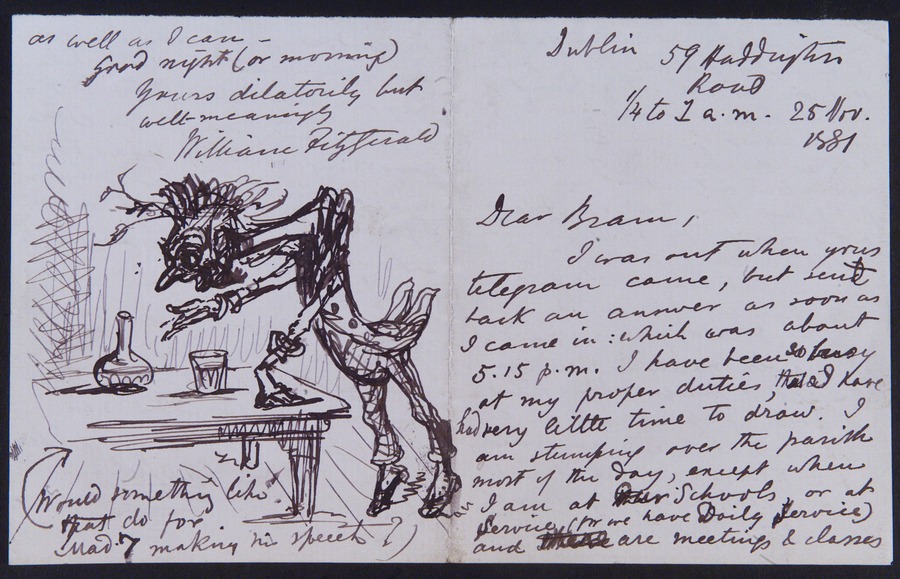 as well as I can -
Good night (or morning)
Yours dilatorily but
well-meaningly
William Fitzgerald
(Would something like
that do for
Mad. 7 making his speech?)
Dublin 59 Haddington
Road
1/4 to 1 a.m. 25 Nov.
1881
Dear Bram,
I was out when your
telegram came, but sent
back an answer as soon as
I came in: which was about
5.15 p.m. I have been so busy
at my proper duties, that I have
had very little time to draw. I
am stumping over the parish
most of the day, except when
I am at our Schools, or at
Service, (for we have Daily Service)
and there are meetings & classes